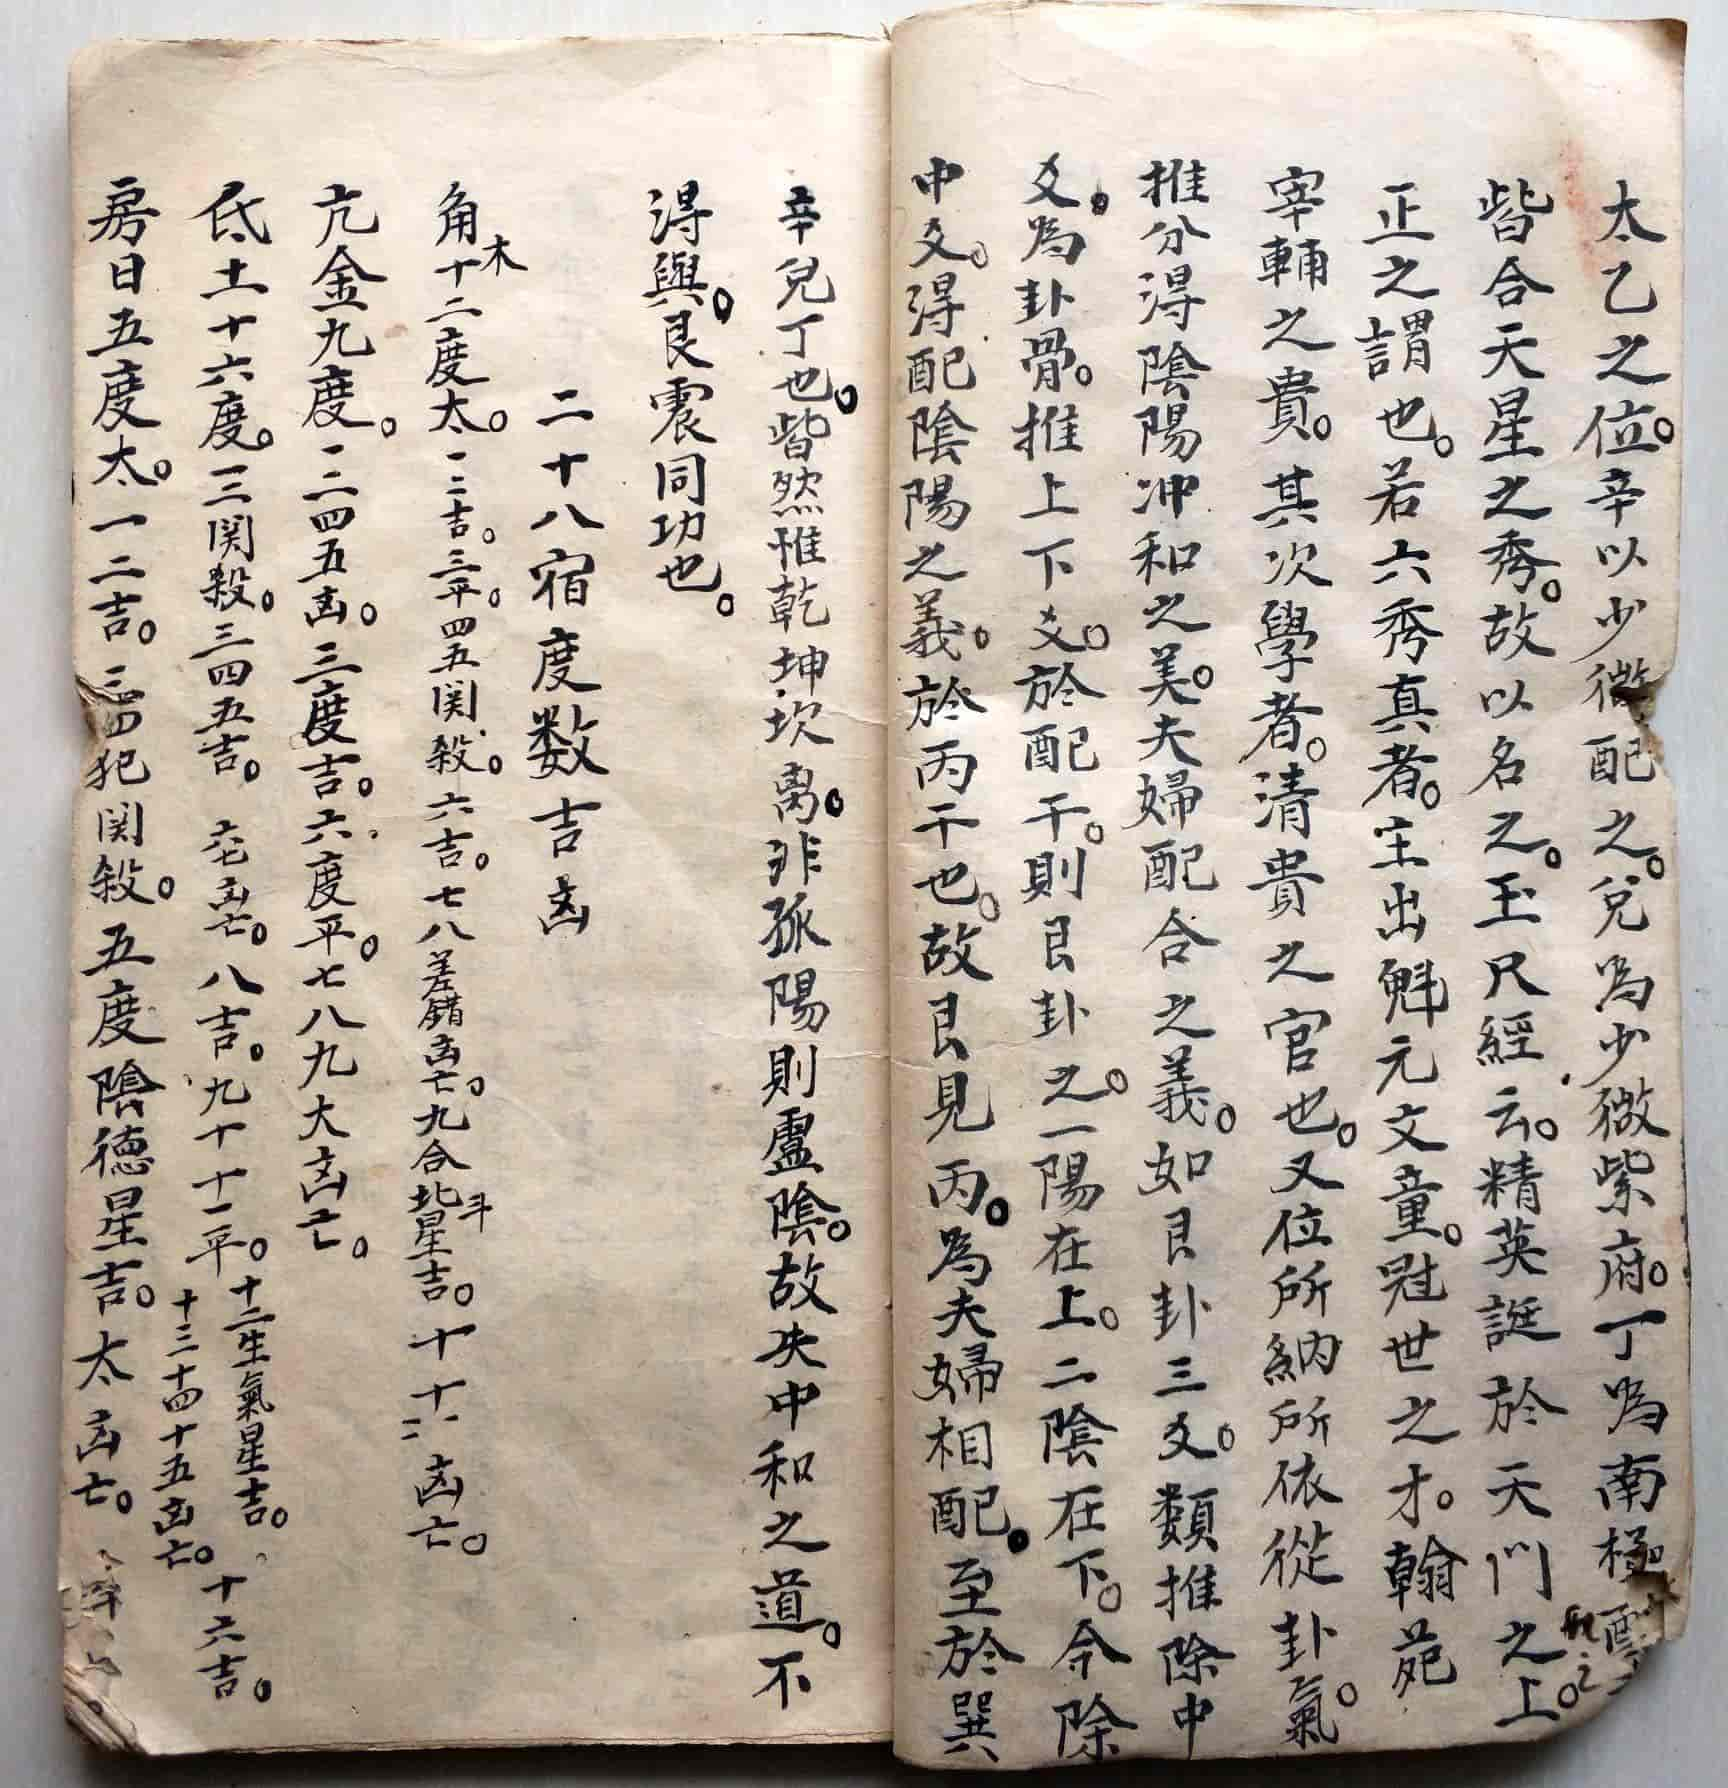 太乙之位。辛以少微配之。兌為少微紫府。丁為南極
皆合天星之秀。故以名之。玉尺經云。精英誕於天門之上。
正之謂也。若六秀真者。主出魁元文章。冠世之才。翰苑
宰輔之貴。其次學者。清貴之官也。又位所納所依從卦氣。
推分得陰陽冲和之美。夫婦配合之義。如艮卦三爻。類推除中
爻。為卦骨。推上下爻。於配干。則艮卦之。一陽在上。二陰在下。今除
中爻。得配陰陽之義。於丙干也。故艮見丙。為夫婦相配。至於巽
辛兌丁也。皆然惟乾坤坎离。非孤陽則虛陰。故失中和之道。不
得與。艮震同功也。
二十八宿度数吉凶
角木十二度太。一二吉。三平。四五関殺。六吉。七八差錯凶亡。九合北斗星吉。十十一十二凶亡。
亢金九度。一二四五凶。三度吉。六度平。七八九大凶亡。
氐土十六度。一二関殺。三四五吉。六七凶亡。八吉。九十十一平。十二生氣星吉。十三十四十五凶亡。十六吉。
房日五度太。一二吉。三四犯関殺。五度陰德星吉。太凶亡。